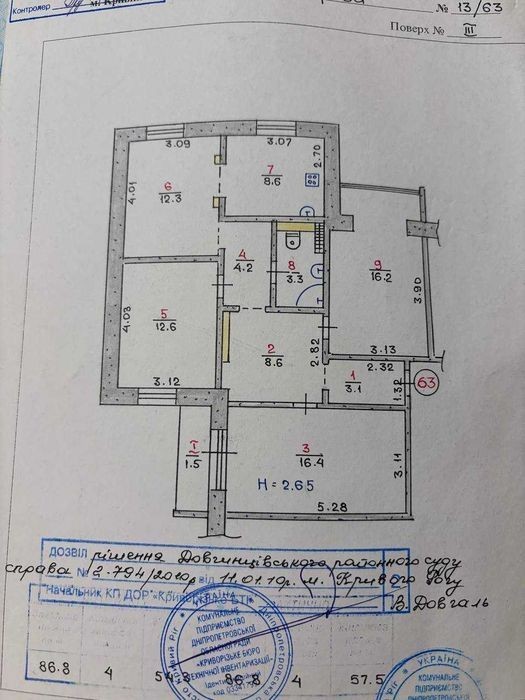 Контролер
№ 13/63
Поверх № III
3.09
3.07
4.01
6
12.3
7
8.6
2.70
4
4.2
8
3.3
9
16.2
3.90
3.13
4.03
5
12.6
3.12
2
8.6
2.82
2.32
1
3.1
1.32
63
I
1.5
3
16.4
3.11
H = 2.65
5.28
ДОЗВІЛ рішення Довгинцівського районного суду
справа № 2-794/2010р від 11.01.10р. (м. Кривого Рогу
Начальник КП ДОР "Криві БТІ"
В. Довгаль
УКРАЇНА
КОМУНАЛЬНЕ
ПІДПРИЄМСТВО
ДНІПРОПЕТРОВСЬКОЇ
ОБЛАСНОЇ РАДИ
«КРИВОРІЗЬКЕ БЮРО
ТЕХНІЧНОЇ ІНВЕНТАРИЗАЦІЇ»
86.8 4 86.8 4 57.5
УКРАЇНА
КОМУНАЛЬНЕ
ПІДПРИЄМСТВО